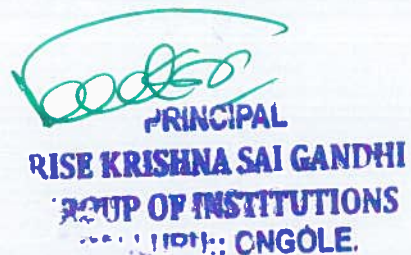 PRINCIPAL
RISE KRISHNA SAI GANDHI
GROUP OF INSTITUTIONS
ONGOLE.